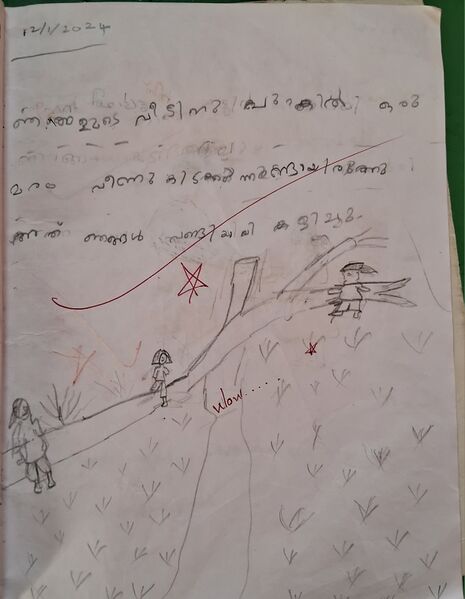 12/1/2024
ഞങ്ങളുടെ വീടിനു പുറകിൽ ഒരു
മരം വീണു കിടക്കുന്നുണ്ടായിരുന്നു
അത് ഞങ്ങൾ വണ്ടിയായി കളിച്ചു.
wow.....